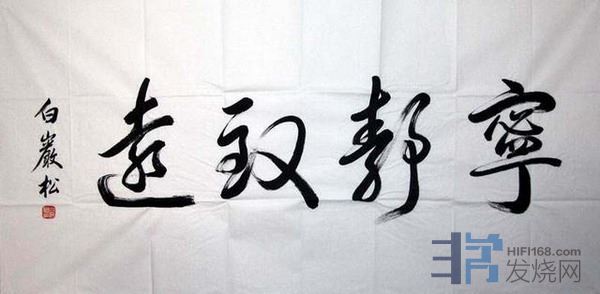 寧靜致遠
白巖松
HIFI168.com
发烧网